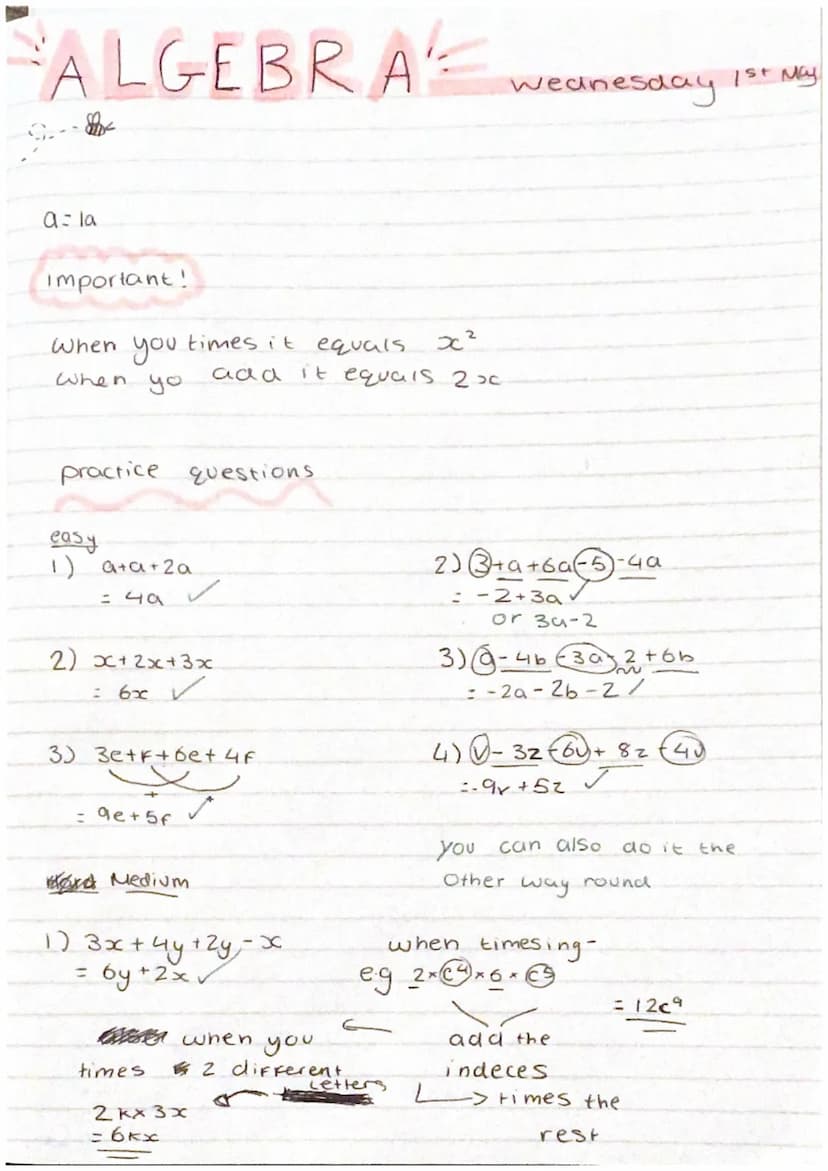 ALGEBRA
wednesday 1st May
a=1a
important!
when you times it equals x²
when yo add it equals 2x
practice questions
easy
1) a+a+2a
= 4a ✓
2) x+2x+3x
= 6x ✓
3) 3e+f+6e+4f
+ +
= 9e+5f ✓
2) 3+a+6a-5-4a
= -2+3a ✓
or 3a-2
3) a-4b-3a-2+6b
= -2a-2b-2 /
4) v-3z-6v+8z-4v
=-9v+5z ✓
you can also do it the
other way round
Medium
1) 3x+4y+2y-x
= 6y+2x ✓
when timesing-
e.g 2×c4×6×c5
= 12c⁹
add the
indeces
→ times the
rest
← when you
times 2 different
letters
2k×3x
=6kx